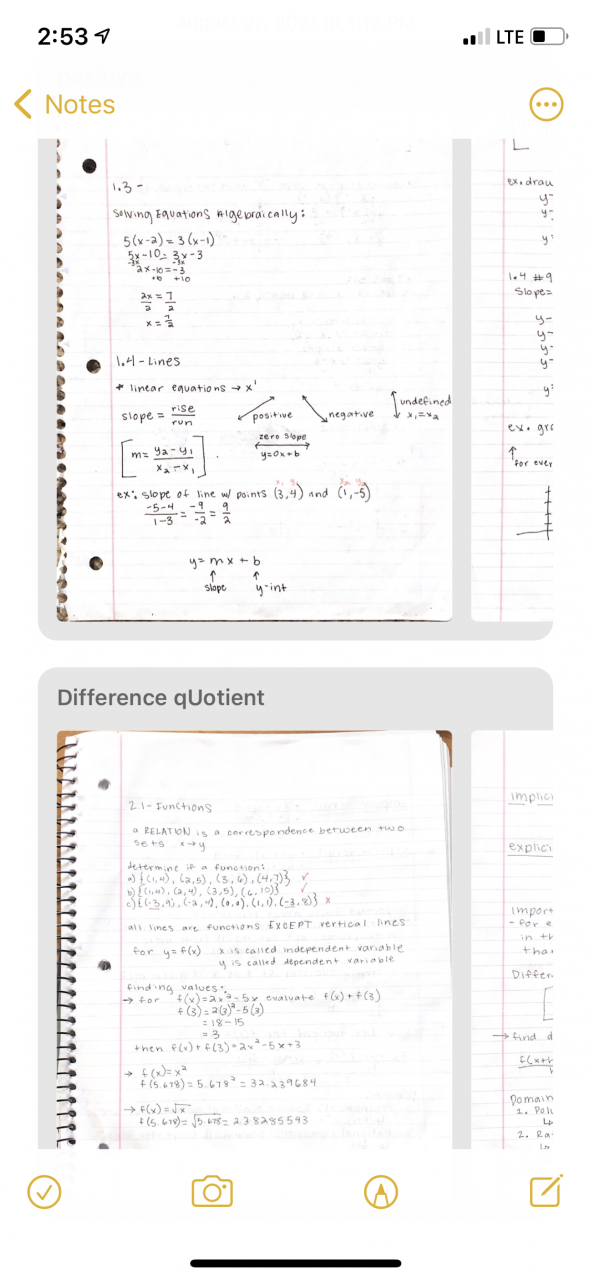 2:53
LTE
Notes
1.3 -
Solving Equations Algebraically:
5(x-2) = 3(x-1)
5x-10 = 3x-3
-3x -3x
2x-10 = -3
+10 +10
2x = 7
2 2
x = 7/2
1.4 - Lines
* linear equations → x¹
slope = rise/run
positive
negative
undefined
x₁=x₂
zero slope
y=0x+b
m= y₂-y₁
x₂-x₁
x₁ y₁ x₂ y₂
ex: slope of line w/ points (3,4) and (1,-5)
-5-4/1-3 = -9/-2 = 9/2
y= mx + b
↑ ↑
slope y-int
ex. draw
y-
y-
y=
1.4 #9
Slope=
y-
y-
y-
y-
y=
ex. gra
↑
for ever
Difference qUotient
2.1- Functions
a RELATION is a correspondence between two
sets x→y
determine if a function:
a) {(1,4), (2,5), (3,6), (4,7)} ✓
b) {(1,4), (2,4), (3,5), (6,10)} ✓
c) {(-3,9), (-2,4), (0,0), (1,1), (-3,8)} x
all lines are functions EXCEPT vertical lines
for y=f(x) x is called independent variable
y is called dependent variable
finding values:
→ for f(x)=2x²-5x evaluate f(x)+f(3)
f(3)= 2(3)²-5(3)
= 18-15
= 3
then f(x)+f(3)=2x²-5x+3
→ f(x)=x²
f(5.678)= 5.678² = 32.239684
→ f(x)=√x
f(5.678)= √5.678= 2.38285543
implici
explici
import
- for e
in th
tha
Differ
→ find d
f(x+h
h
Domain
1. Pol
↳
2. Ra
↳